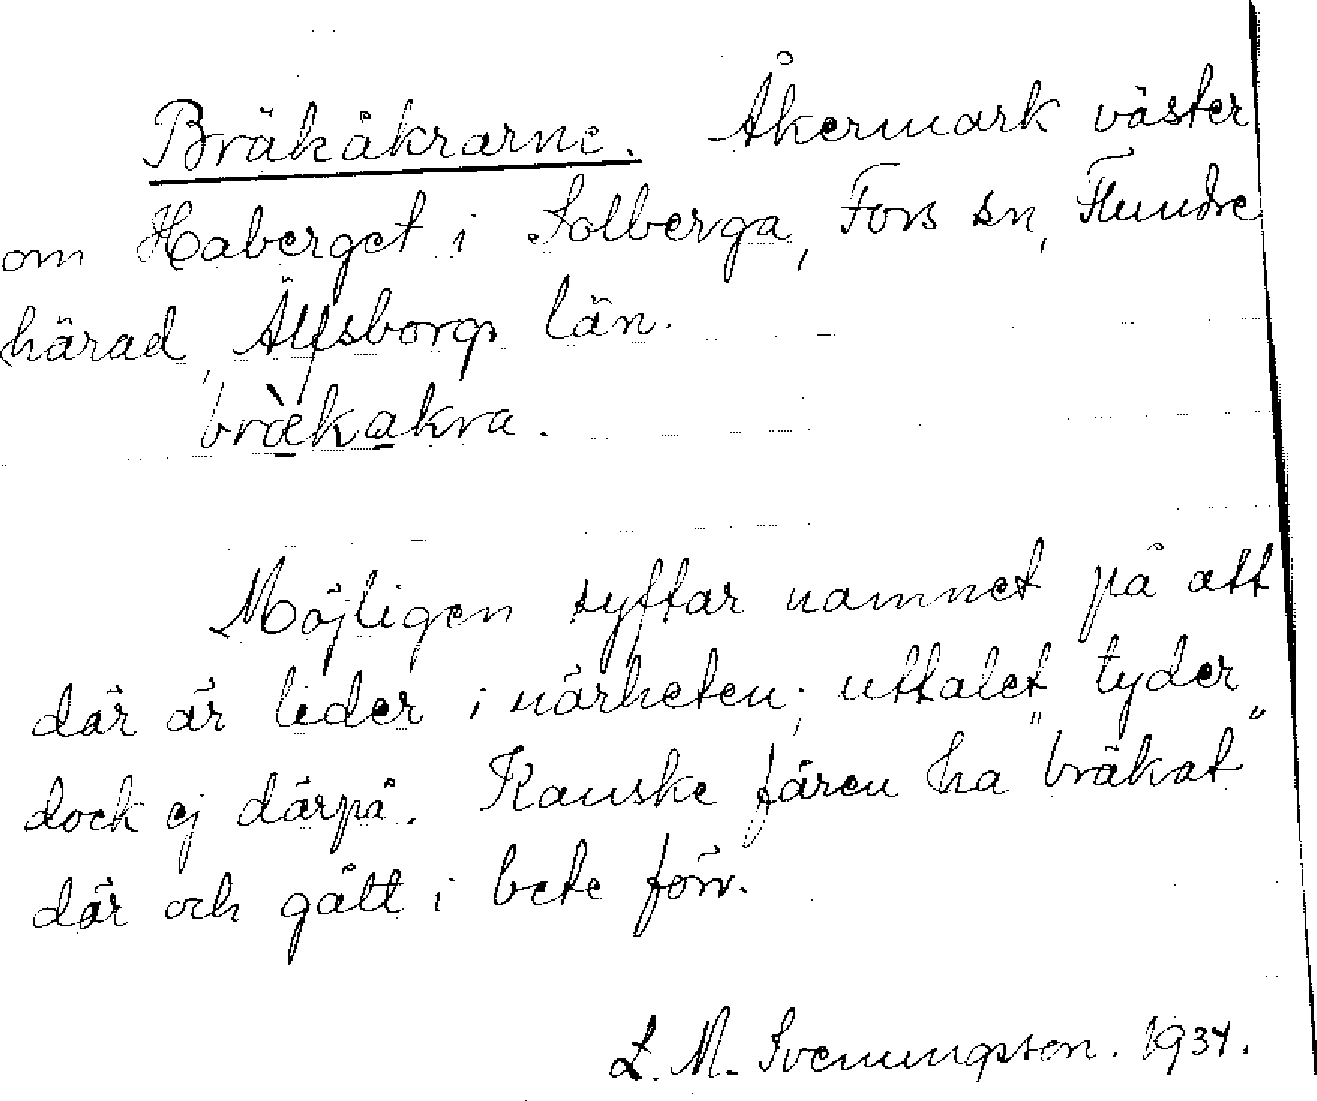 Bräkåkrarne. Åkermark väster
om Haberget i Solberga, Fors sn, Flundre
härad, Älfsborgs län.
bræ̀kakra.
Möjligen syftar namnet på att
där är lider i närheten; uttalet tyder
dock ej därpå. Kanske fåren ha "bräkat"
där och gått i bete förr.
L. M. Svenungsson. 1934.